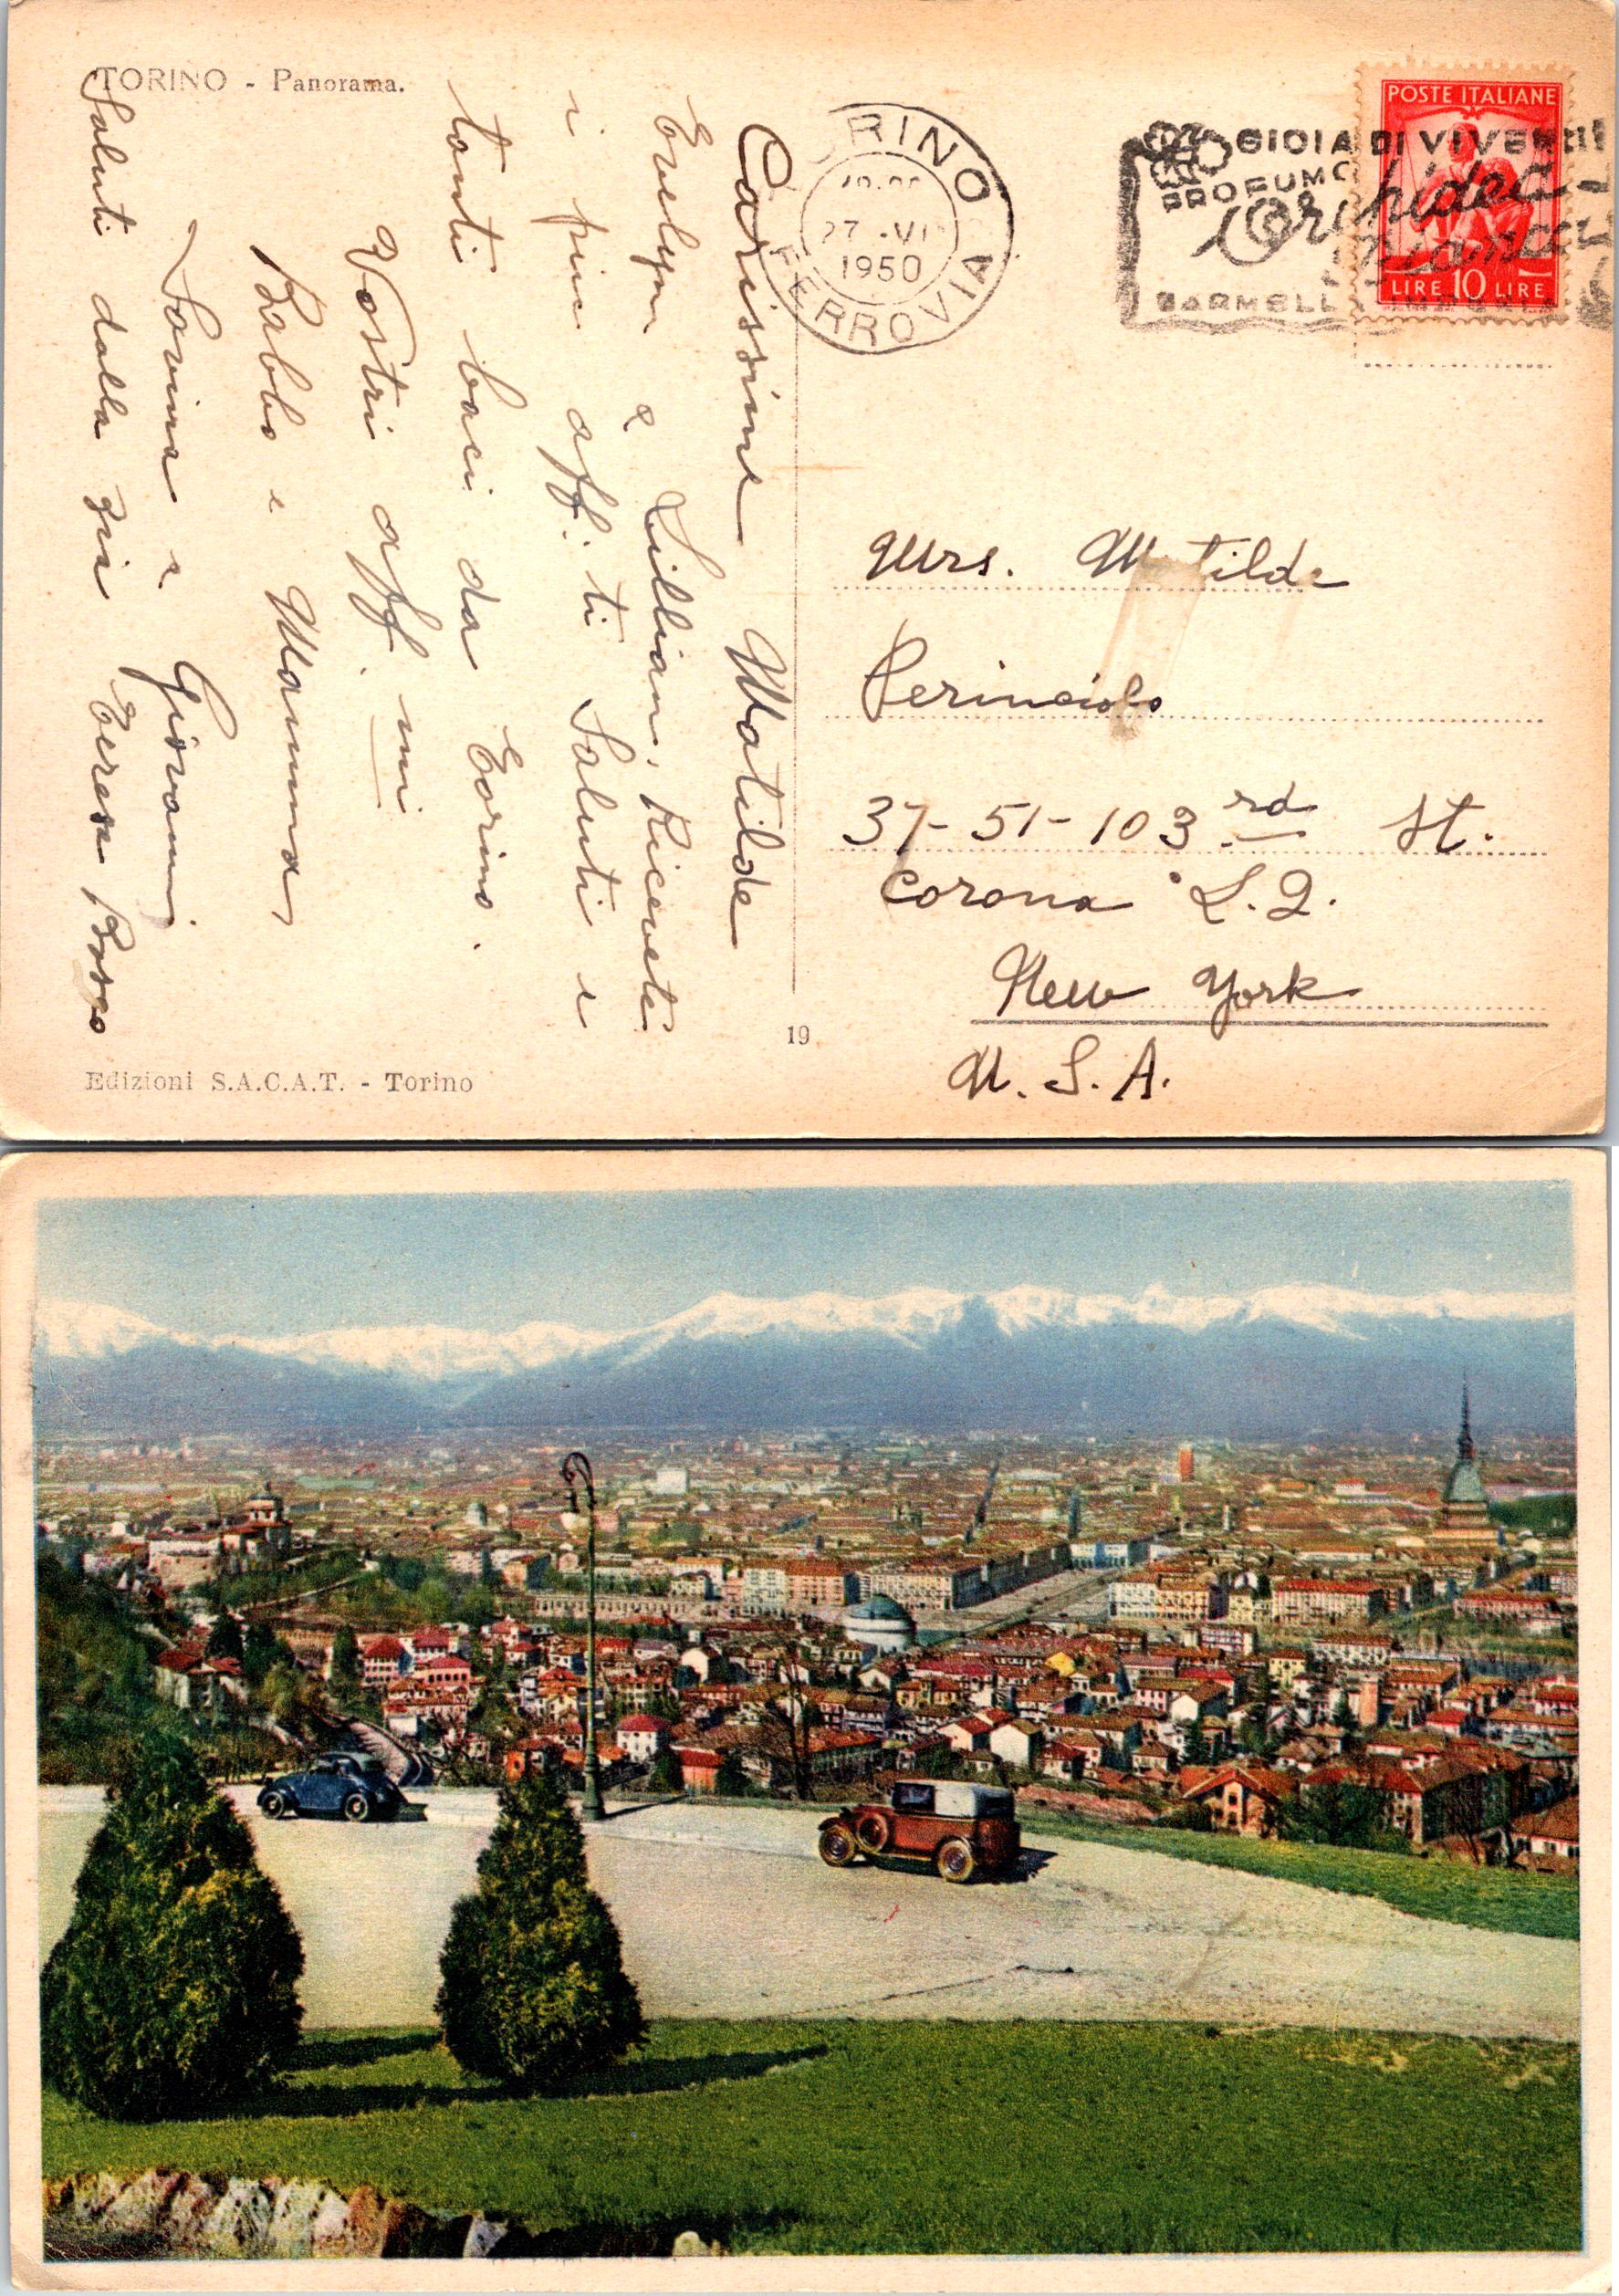 TORINO - Panorama.
Carissime Matilde
Evelyn e Lillian, Ricevete
i più aff. ti Saluti e
tanti baci da Torino.
Vostri aff. mi
Babbo e Mamma
Savina e Giovanni
Saluti dalla zia Teresa Bosco
Edizioni S.A.C.A.T. - Torino
19
RINO
27 . VI
1950
FERROVIA
GIOIA DI VIVERE
PROFUMO
Orchidea
POSTE ITALIANE
LIRE 10 LIRE
Mrs. Matilde
Perinciolo
37-51-103rd St.
Corona L.I.
New York
U.S.A.